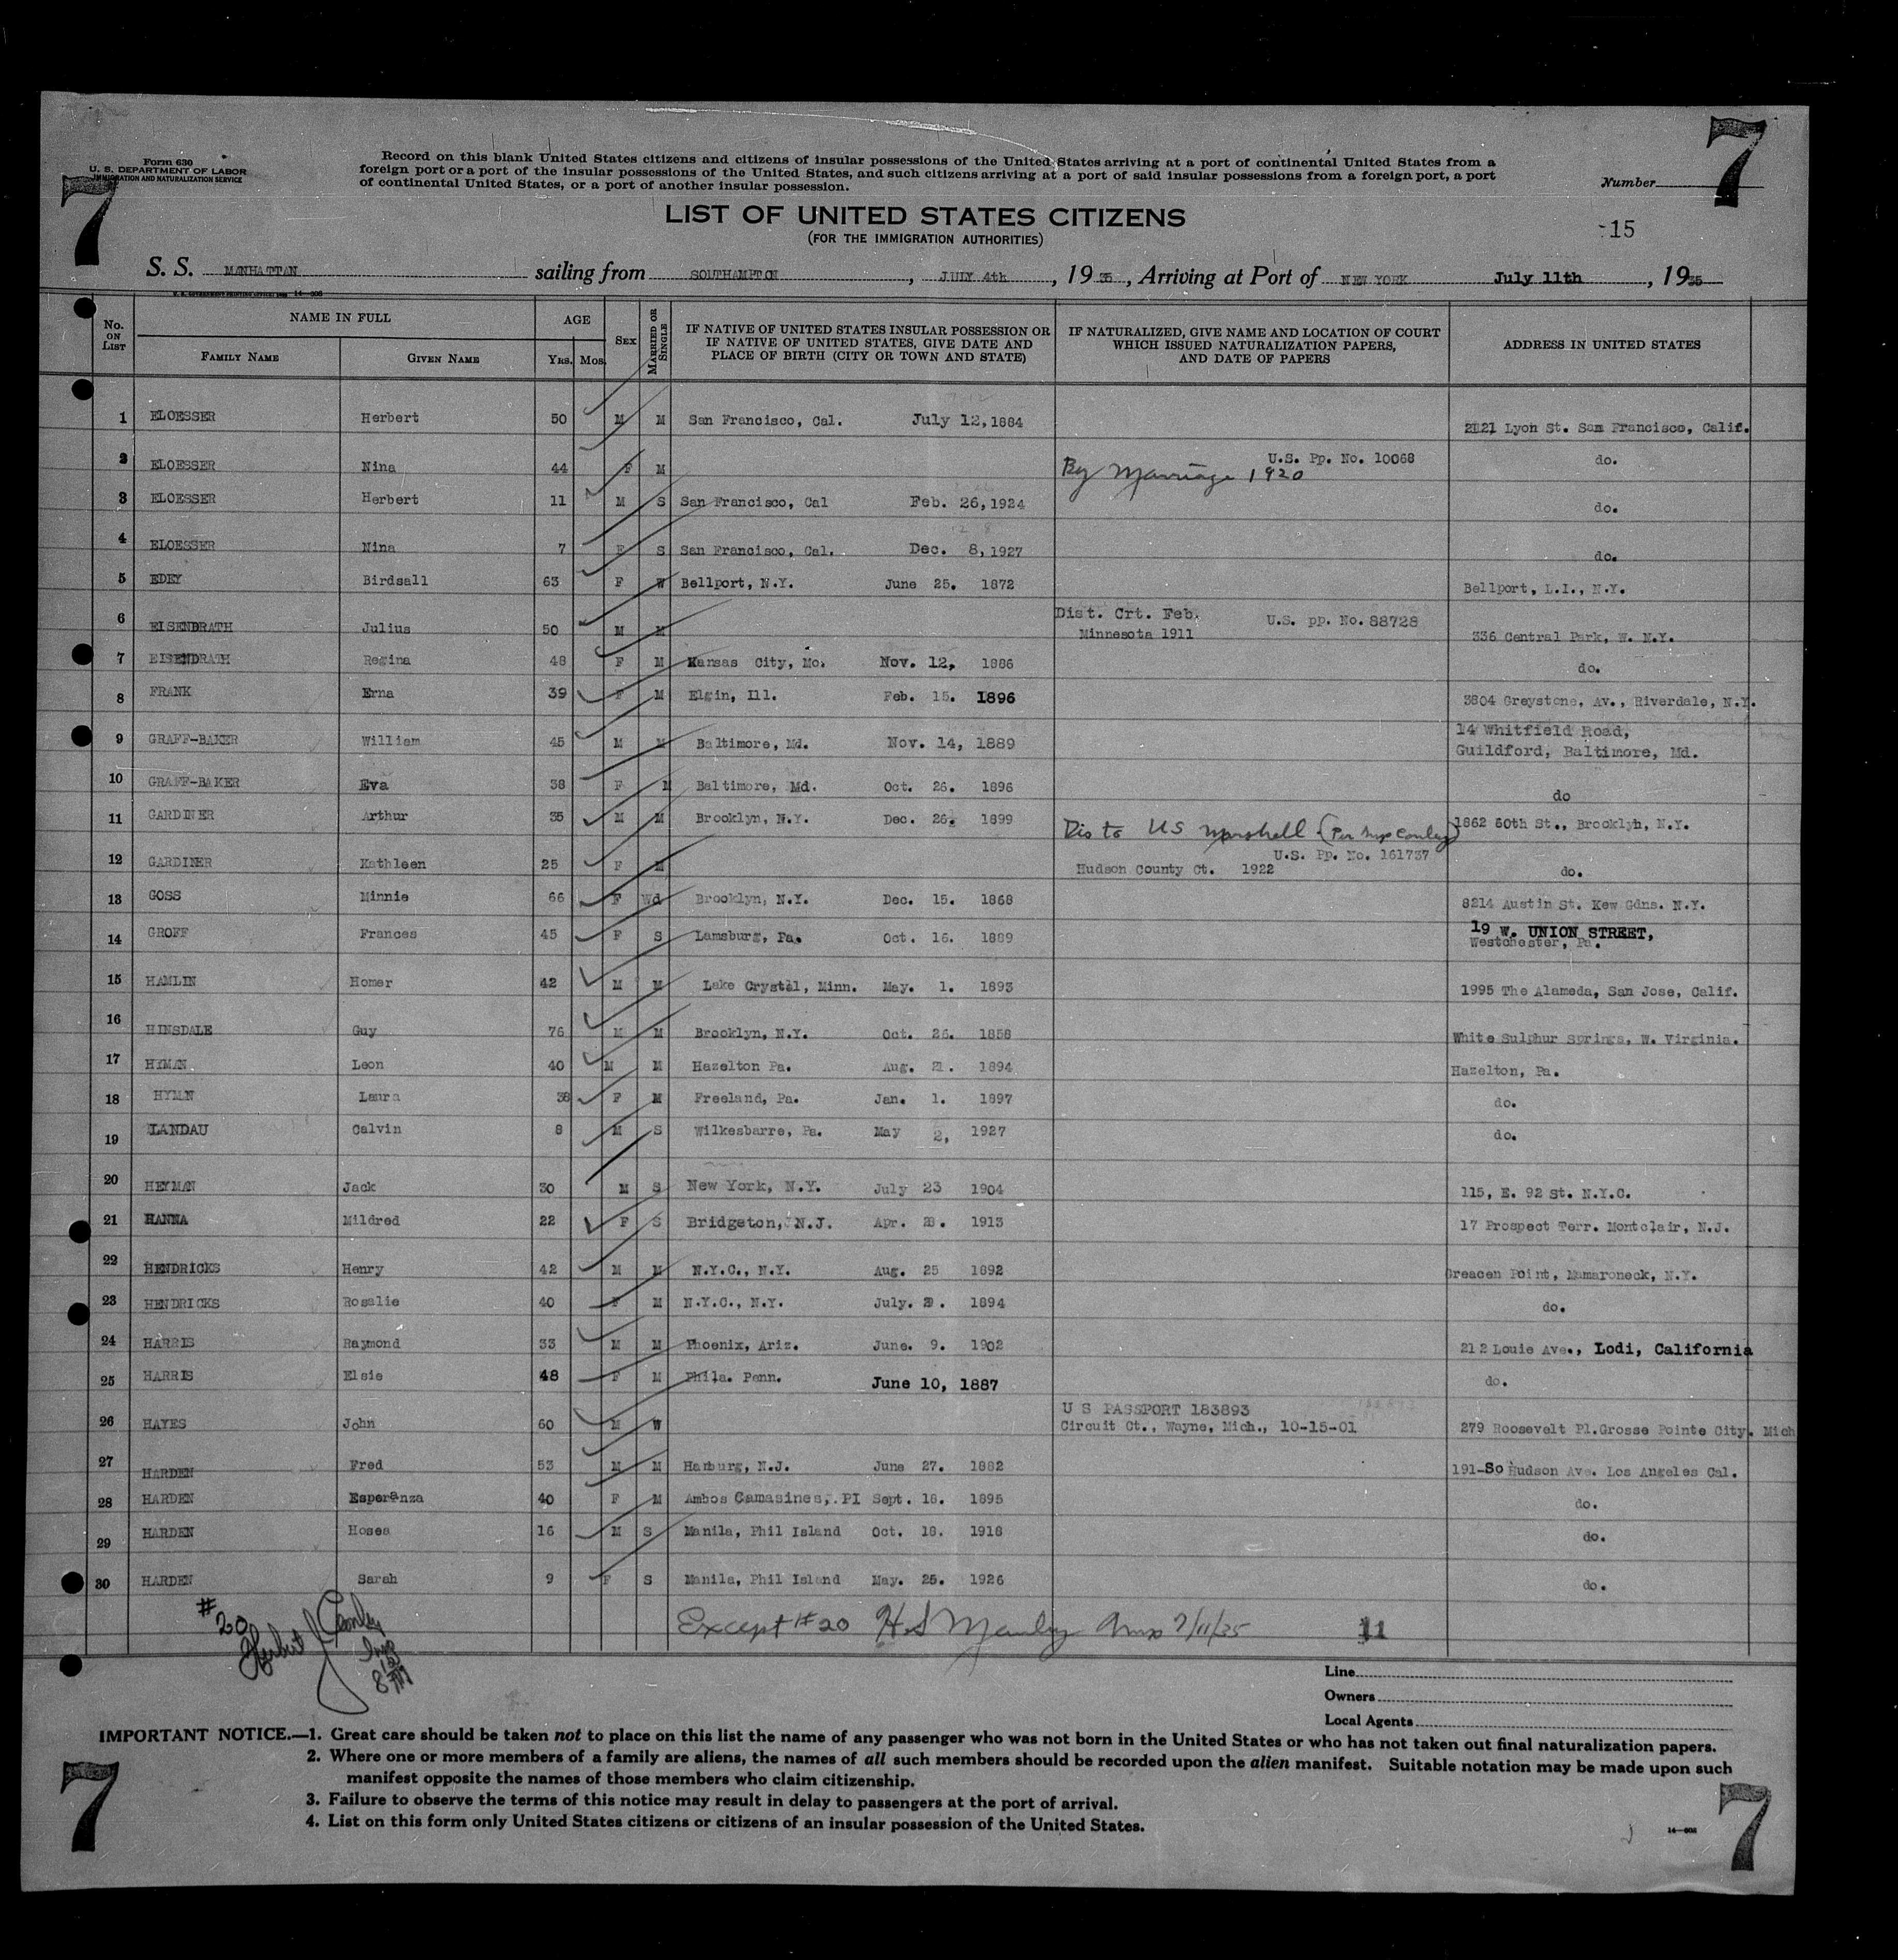 7
7
Form 630
U. S. DEPARTMENT OF LABOR
IMMIGRATION AND NATURALIZATION SERVICE
Record on this blank United States citizens and citizens of insular possessions of the United States arriving at a port of continental United States from a
foreign port or a port of the insular possessions of the United States, and such citizens arriving at a port of said insular possessions from a foreign port, a port
of continental United States, or a port of another insular possession.
Number
LIST OF UNITED STATES CITIZENS
(FOR THE IMMIGRATION AUTHORITIES)
-15
S. S. MANHATTAN sailing from SOUTHAMPTON, JULY 4th, 1935, Arriving at Port of NEW YORK July 11th, 1935
No. ON LIST NAME IN FULL AGE SEX MARRIED OR SINGLE IF NATIVE OF UNITED STATES INSULAR POSSESSION OR IF NATIVE OF UNITED STATES, GIVE DATE AND PLACE OF BIRTH (CITY OR TOWN AND STATE) IF NATURALIZED, GIVE NAME AND LOCATION OF COURT WHICH ISSUED NATURALIZATION PAPERS, AND DATE OF PAPERS ADDRESS IN UNITED STATES
FAMILY NAME GIVEN NAME YRS. MOS.
1 ELOESSER Herbert 50 M M San Francisco, Cal. July 12, 1884 2121 Lyon St. San Francisco, Calif.
2 ELOESSER Nina 44 F M By Marriage 1920 U.S. Pp. No. 10068 do.
3 ELOESSER Herbert 11 M S San Francisco, Cal Feb. 26, 1924 do.
4 ELOESSER Nina 7 F S San Francisco, Cal. Dec. 8, 1927 do.
5 EDEY Birdsall 63 F W Bellport, N.Y. June 25. 1872 Bellport, L.I., N.Y.
6 EISENDRATH Julius 50 M M Dist. Crt. Feb. Minnesota 1911 U.S. pp. No. 88728 336 Central Park, W. N.Y.
7 EISENDRATH Regina 48 F M Kansas City, Mo. Nov. 12, 1886 do.
8 FRANK Erna 39 F M Elgin, Ill. Feb. 15. 1896 3804 Greystone, Av., Riverdale, N.Y.
9 GRAFF-BAKER William 45 M M Baltimore, Md. Nov. 14, 1889 14 Whitfield Road, Guildford, Baltimore, Md.
10 GRAFF-BAKER Eva 38 F M Baltimore, Md. Oct. 26. 1896 do
11 GARDINER Arthur 35 M M Brooklyn, N.Y. Dec. 26. 1899 Dis to US Marshell (Per Insp Conley) 1862 60th St., Brooklyn, N.Y.
12 GARDINER Kathleen 25 F M Hudson County Ct. 1922 U.S. Pp. No. 161737 do.
13 GOSS Minnie 66 F Wd Brooklyn, N.Y. Dec. 15. 1868 8214 Austin St. Kew Gdns. N.Y.
14 GROFF Frances 45 F S Lamsburg, Pa. Oct. 16. 1889 19 W. UNION STREET, Westchester, Pa.
15 HAMLIN Homer 42 M M Lake Crystal, Minn. May. 1. 1893 1995 The Alameda, San Jose, Calif.
16 HINSDALE Guy 76 M M Brooklyn, N.Y. Oct. 26. 1858 White Sulphur Springs, W. Virginia.
17 HYMAN Leon 40 M M Hazelton Pa. Aug. 1894 Hazelton, Pa.
18 HYMAN Laura 38 F M Freeland, Pa. Jan. 1. 1897 do.
19 LANDAU Calvin 8 M S Wilkesbarre, Pa. May 2, 1927 do.
20 HEYMAN Jack 30 M S New York, N.Y. July 23 1904 115, E. 92 St. N.Y.C.
21 HANNA Mildred 22 F S Bridgeton, N.J. Apr. 1913 17 Prospect Terr. Montclair, N.J.
22 HENDRICKS Henry 42 M M N.Y.C., N.Y. Aug. 25 1892 Greacen Point, Mamaroneck, N.Y.
23 HENDRICKS Rosalie 40 F M N.Y.C., N.Y. July. 1894 do.
24 HARRIS Raymond 33 M M Phoenix, Ariz. June. 9. 1902 212 Louie Ave., Lodi, California
25 HARRIS Elsie 48 F M Phila. Penn. June 10, 1887 do.
26 HAYES John 60 M W U S PASSPORT 183893 Circuit Ct., Wayne, Mich., 10-15-01 279 Roosevelt Pl. Grosse Pointe City. Mich
27 HARDEN Fred 53 M M Harburg, N.J. June 27. 1882 191-So Hudson Ave. Los Angeles Cal.
28 HARDEN Esperanza 40 F M Ambos Camasines, PI Sept. 18. 1895 do.
29 HARDEN Hosea 16 M S Manila, Phil Island Oct. 18. 1918 do.
30 HARDEN Sarah 9 F S Manila, Phil Island May. 25. 1926 do.
#20 Herbert J Conley Insp
Except #20 H S Manley Insp 7/11/35 11
Line
Owners
Local Agents
IMPORTANT NOTICE.—1. Great care should be taken not to place on this list the name of any passenger who was not born in the United States or who has not taken out final naturalization papers.
2. Where one or more members of a family are aliens, the names of all such members should be recorded upon the alien manifest. Suitable notation may be made upon such
manifest opposite the names of those members who claim citizenship.
3. Failure to observe the terms of this notice may result in delay to passengers at the port of arrival.
4. List on this form only United States citizens or citizens of an insular possession of the United States.
7
7